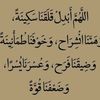 اللّهُمَّ أَبْدِلْ قَلَقَنَا سَكِينَةً،
وَهَمَّنَا انْشِرَاحٍ، وَخَوْفَنَا طُمَأْنِينَةً
وَضِيقَنَا فَرَحٍ، وَعُسْرَنَا يُسْرًا،
وَضَعْفَنَا قُوَّةً